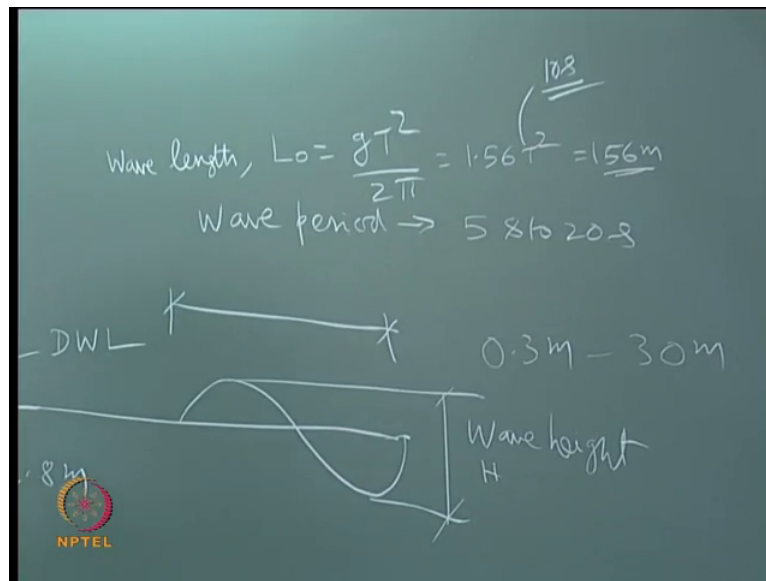 10s
Wave length, Lo = gT²/2π = 1.56T² = 156m
Wave period → 5s to 20s
DWL
0.3m - 30m
Wave height
H
.8m
NPTEL